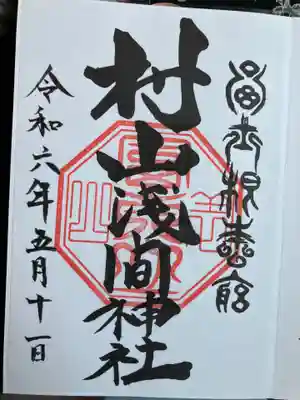 冨士根本宮
村山浅間神社
令和六年五月十一日